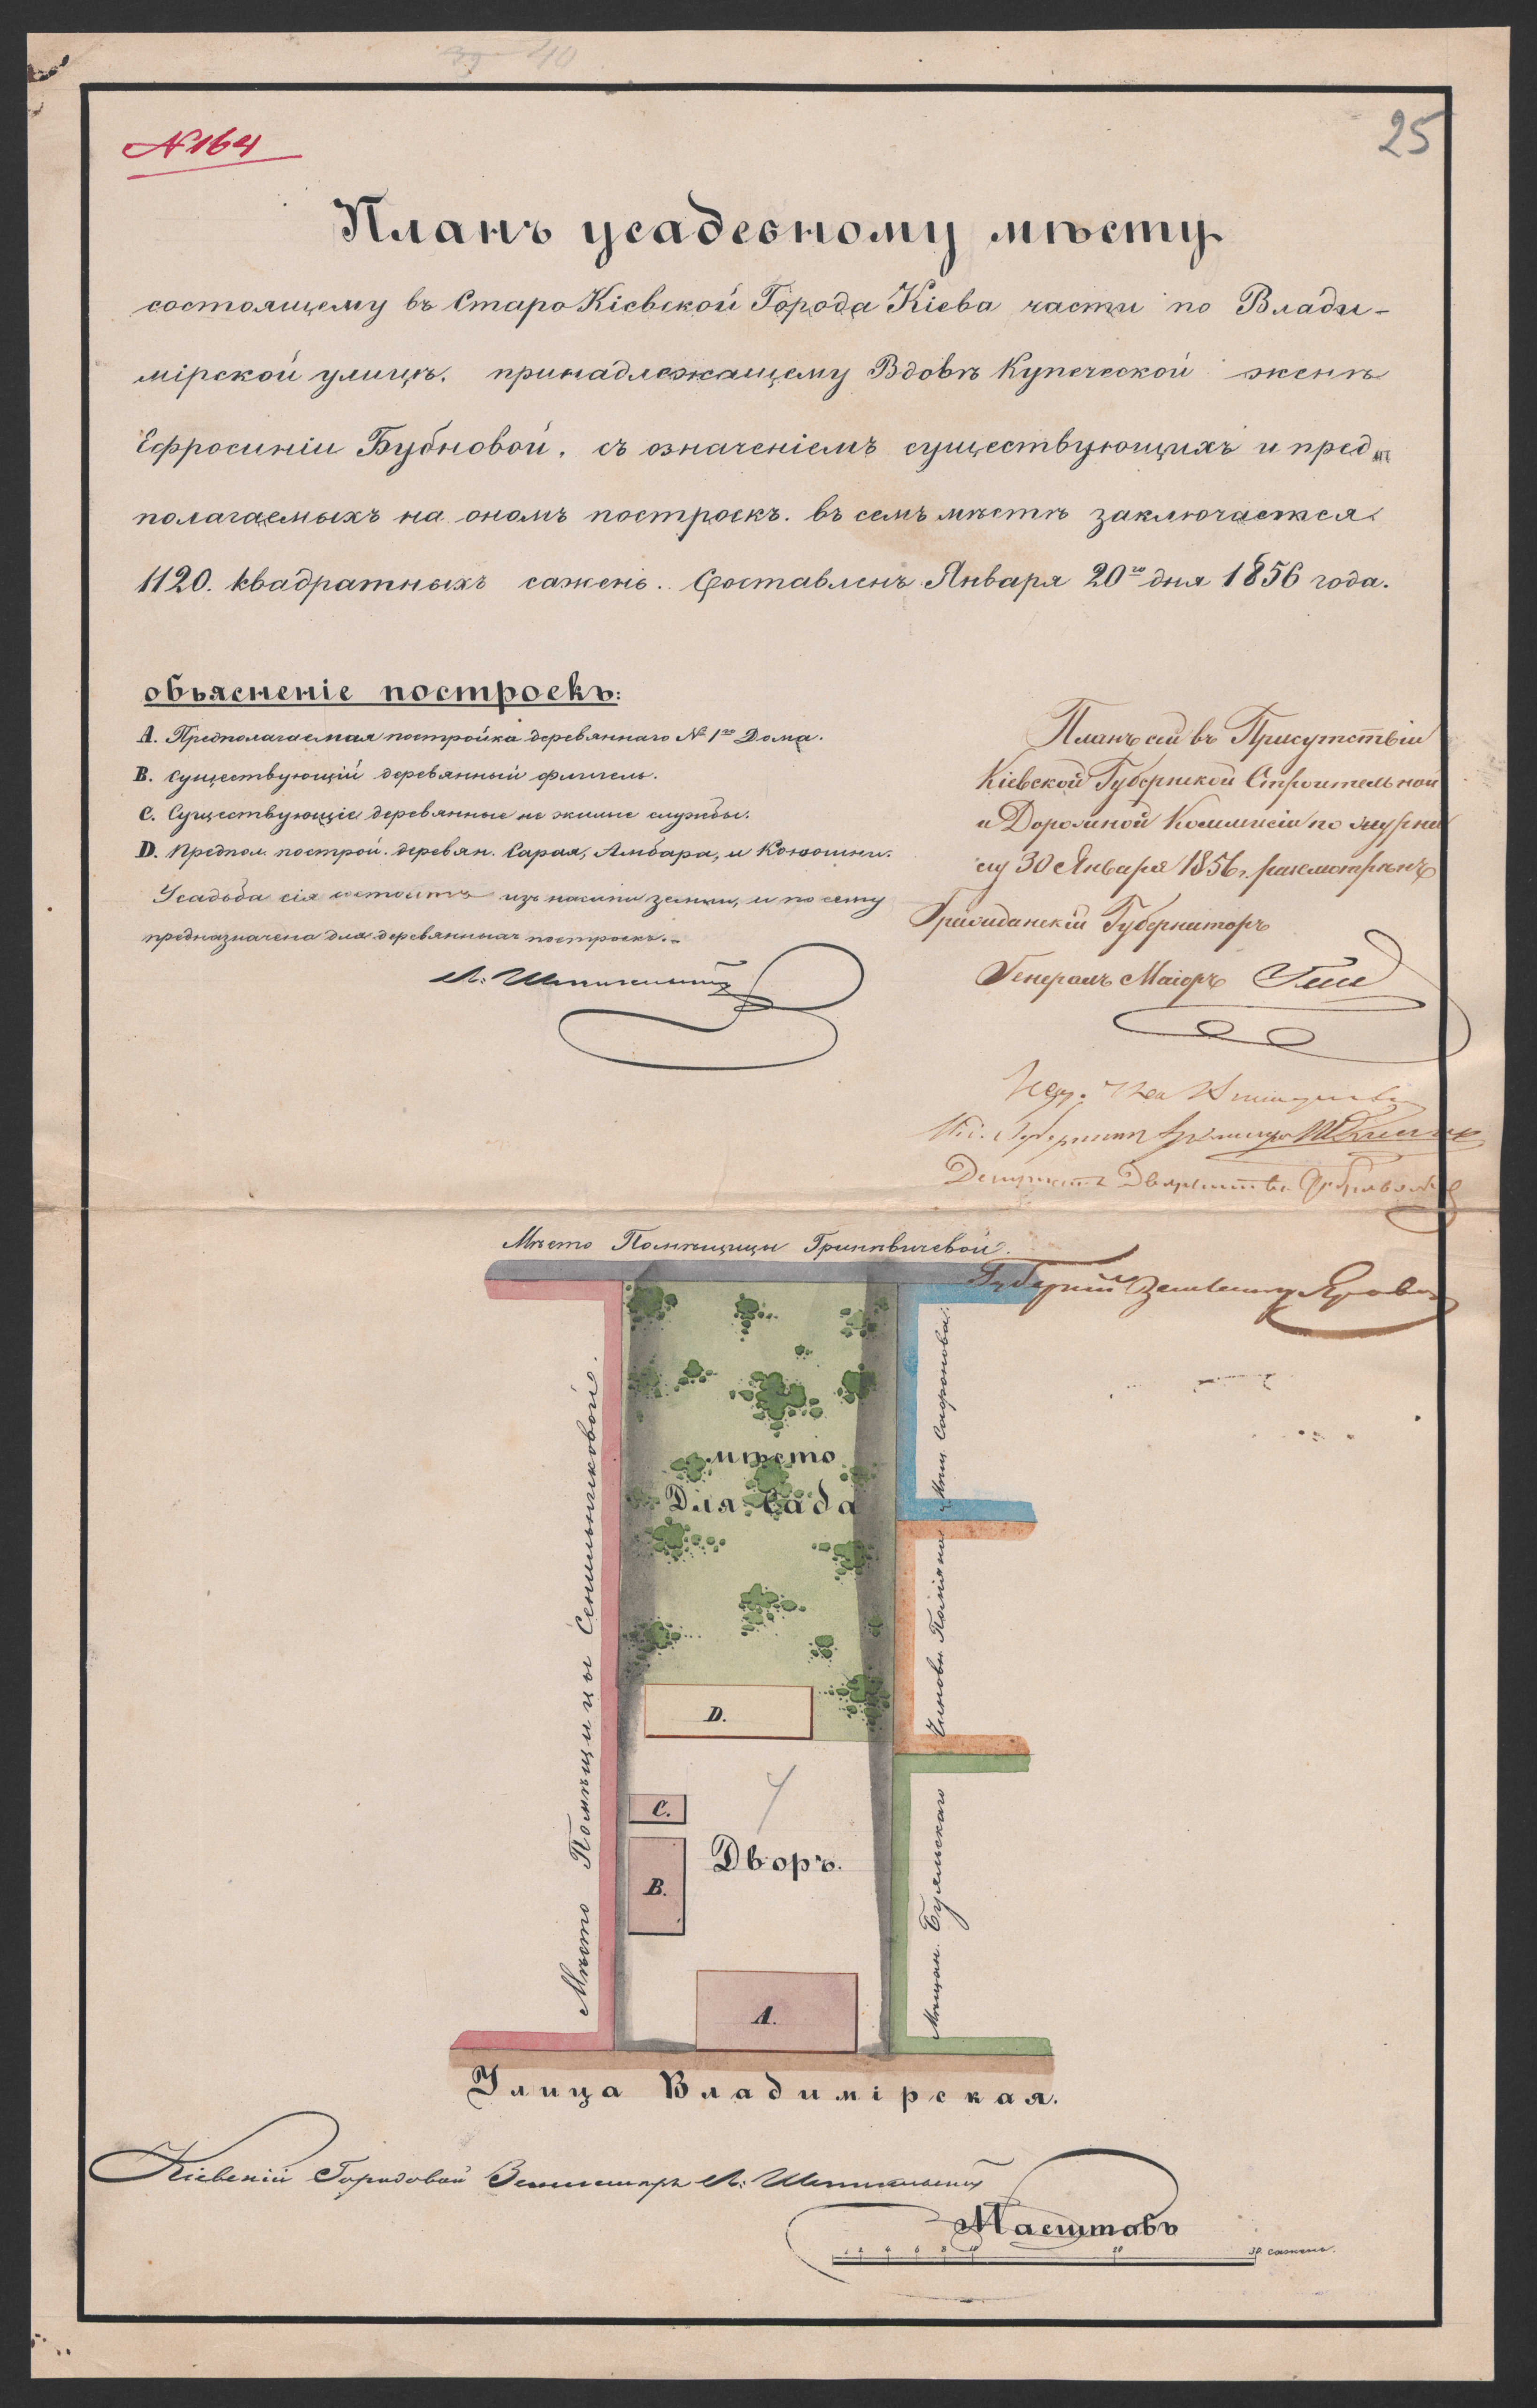 39 40
25
N 164
Планъ усадебному мѣсту
состоящему въ Старо Кіевской Города Кіева части по Влади-
мірской улицѣ. принадлежащему Вдовѣ Купеческой женѣ
Ефросиніи Бубновой, съ означеніемъ существующихъ и пред
полагаемыхъ на ономъ построекъ. въ семъ мѣстѣ заключается
1120. квадратныхъ сажень. Составленъ Января 20го дня 1856 года.
обьясненіе построекъ:
А. Предполагаемая постройка деревяннаго № 1го Дома.
В. Существующій деревянный флигель.
С. Существующіе деревянные не жилые службы.
D. Предпол. построй. деревян. Сарая, Амбара, и Конюшни.
Усадьба сія состоитъ изъ насыпи земли, и по сему
предназначена для деревянныхъ построекъ.
Планъ сей въ Присутствіи
Кіевской Губернской Строительной
и Дорожной Коммисіи по журна
лу 30 Января 1856 г. разсмотрѣнъ
Гражданскій Губернаторъ
Генералъ Маіоръ
Депутатъ Дворянства
Губернскій Землемѣръ
Мѣсто Помѣщицы Гринкевичевой.
Мѣсто Помѣщицы Сенильниковой.
Мѣщ. Сафонова.
Чиновн.
Мѣщан.
мѣсто
Для Сада
D.
C.
Дворъ.
B.
A.
Улица Владимірская.
Кіевскій Городовой Землемѣръ
Масштабъ
2 4 6 8 10 20 30 сажень.